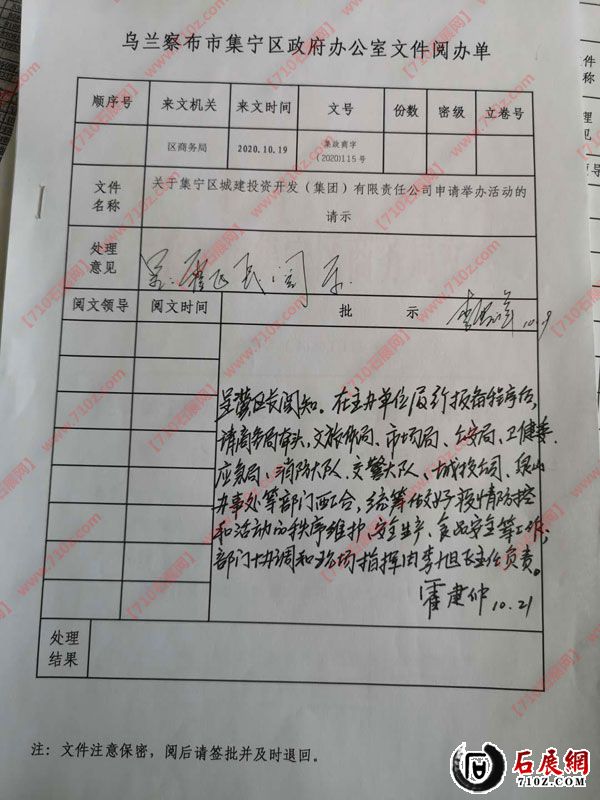 乌兰察布市集宁区政府办公室文件阅办单
顺序号 来文机关 来文时间 文号 份数 密级 立卷号
区商务局 2020.10.19 集政商字
(2020)115号
文件
名称
关于集宁区城建投资开发（集团）有限责任公司申请举办活动的
请示
处理
意见
呈 区长阅示.
阅文领导 阅文时间 批 示
10.19
呈 区长阅知。在主办单位履行报备程序后,
请商务局牵头,文旅体局、市场局、公安局、卫健委
应急局、消防大队、交警大队、城投公司、泉山
办事处等部门配合,统筹做好疫情防控
和活动的秩序维护、安全生产、食品安全等工作,
部门协调和现场指挥由李旭东主任负责。
霍建仲 10.21
处理
结果
注：文件注意保密，阅后请签批并及时退回。
【710石展网】www.710z.com
石展網
710Z.COM